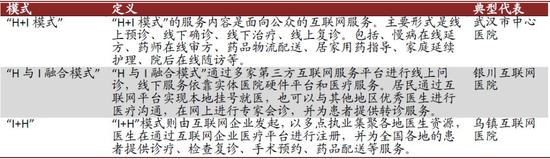 模式 定义 典型代表
“H+I 模式” “H+I 模式”的服务内容是面向公众的互联网服务。主要形式是线 武汉市中心
上预诊、线下确诊、线下治疗、线上复诊。包括、慢病在线延 医院
方、药师在线审方、药品物流配送、居家用药指导、家庭延续
护理、院后在线随访等。
“H 与 I 融合模式” “H 与 I 融合模式”通过多家第三方互联网服务平台进行线上问 银川互联网
诊，线下服务依靠实体医院硬件平台和医疗服务。居民通过互 医院
联网平台实现本地挂号就医，也可以与其他地区优秀医生进行
医疗沟通，在网上进行专家会诊，并为患者提供转诊服务。
“I+H” “I+H”模式则由互联网企业发起，以多点执业集聚各地医生资源， 乌镇互联网
医生在通过互联网企业医疗平台进行注册，并为全国各地的患 医院
者提供诊疗、检查复诊、手术预约、药品配送等服务。